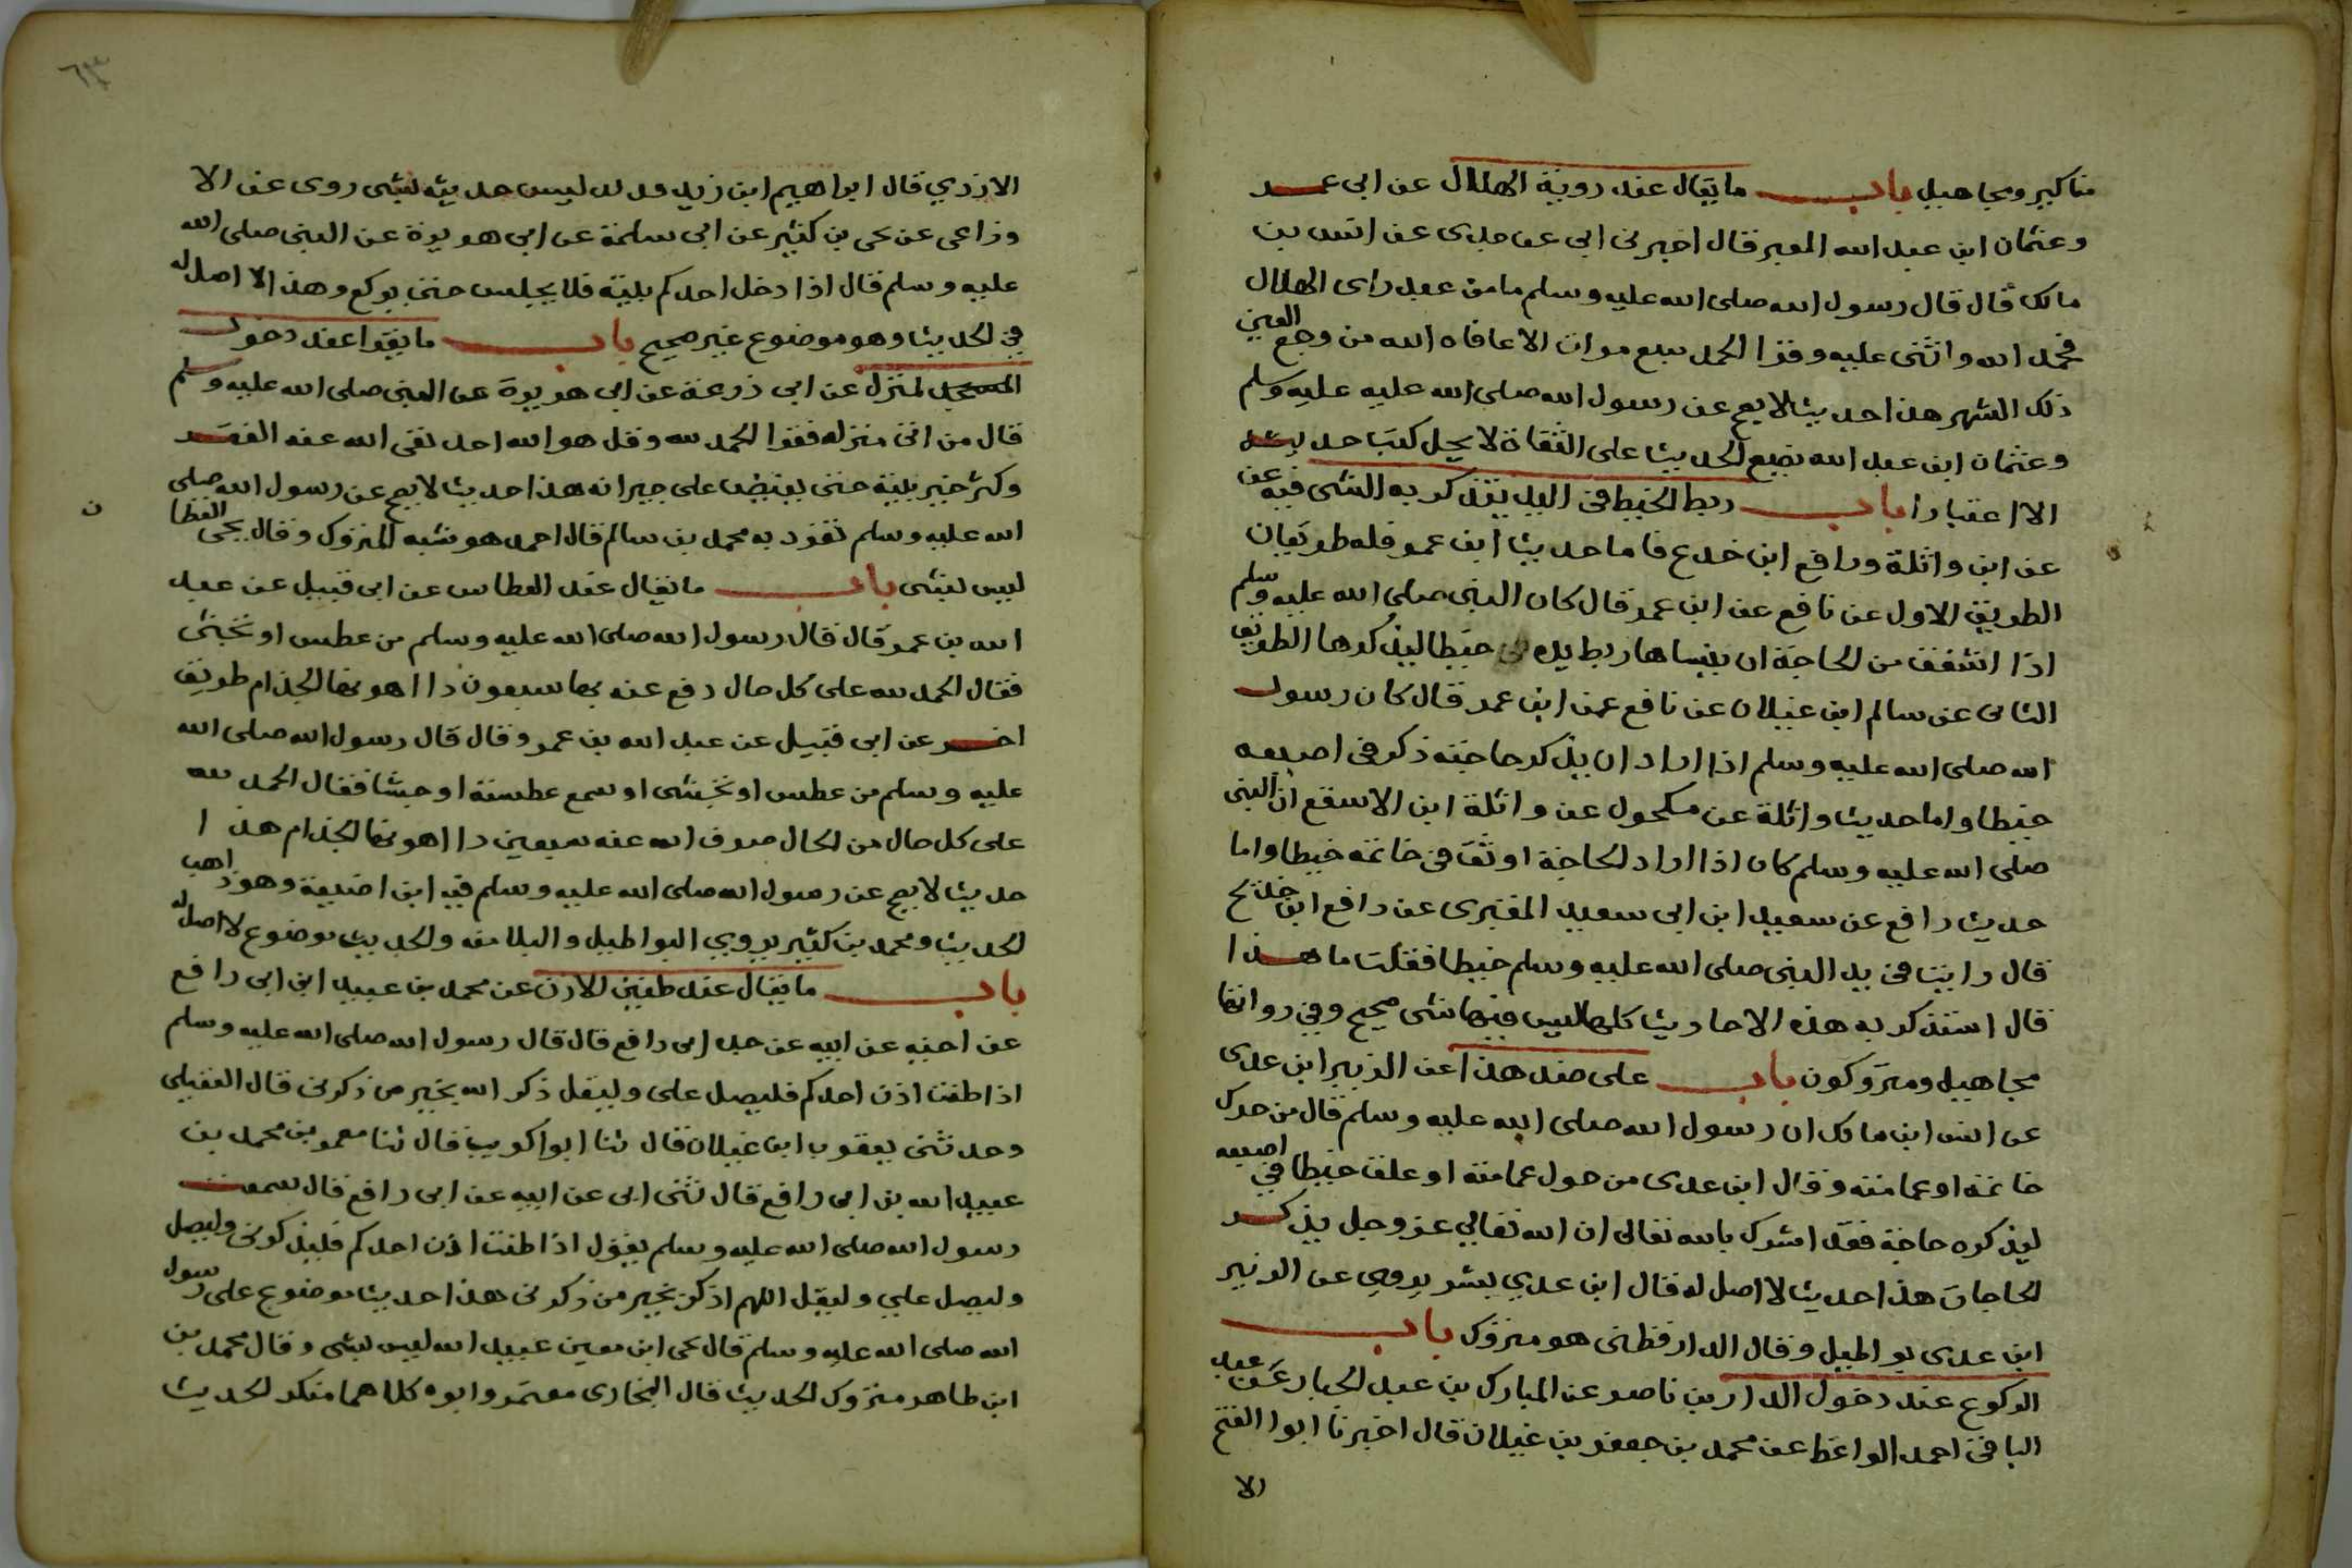 مناكير ومجاهيل باب ما يقال عند روية الهلال عن ابى عمر
وعثمان ابن عبد الله المعبر قال اخبرنى ابى عن جدى عن انس بن
مالك قال قال رسول الله صلى الله عليه وسلم ما من عبد راى الهلال
فحمد الله واثنى عليه وقرا الحمد سبع مرات الا عافاه الله من وجع العين
ذلك الشهر هذا حديث لا يصح عن رسول الله صلى الله عليه عليه وسلم
وعثمان ابن عبد الله يضع الحديث على الثقاة لا يحل كتب حديثه
الا اعتبارا باب ربط الخيط فى اليد يتذكر به الشى فيه عن
عن ابن واثلة ورافع ابن خدع فاما حديث ابن عمر فله طريقان
الطريق الاول عن نافع عن ابن عمر قال كان النبى صلى الله عليه وسلم
اذا اشفق من الحاجة ان ينساها ربط يده فى خيطا ليذكرها الطريق
الثانى عن سالم ابن غيلان عن نافع عن ابن عمر قال كان رسول
الله صلى الله عليه وسلم اذا اراد ان يذكر حاجته ذكر فى اصبعه
خيطا واما حديث واثلة عن مكحول عن واثلة ابن الاسقع ان النبى
صلى الله عليه وسلم كان اذا اراد الحاجة اوثق فى خاتمه خيطا واما
حديث رافع عن سعيد ابن ابى سعيد المقبرى عن رافع ابن خديج
قال رايت فى يد النبى صلى الله عليه وسلم خيطا فقلت ما هذا
قال استذكر به هذه الاحاديث كلها ليس فيها شى صحيح وفى رواتها
مجاهيل ومتروكون باب على ضد هذا عن الزبير ابن عدى
عن انس ابن مالك ان رسول الله صلى الله عليه وسلم قال من حرك
خاتمه او عمامته وقال ابن عدى من حول عمامته او علق خيطا فى اصبعه
ليذكره حاجة فقد اشرك بالله تعالى ان الله تعالى عز وجل يذكر
الحاجات هذا حديث لا اصل له قال ابن عدي بشر يروي عن الزبير
ابن عدى بواطيل وقال الدارقطنى هو متروك باب
الركوع عند دخول الدار بن ناصر عن المبارك بن عبد الجبار عن عبد
الباقى احمد الواعظ عن محمد بن جعفر بن غيلان قال اخبرنا ابوا الفتح
الا
٦٣
الازدي قال ابراهيم ابن زيد ليس حديثه بشى روى عن الا
وزاعى عن يحى بن كثير عن ابى سلمة عن ابى هريرة عن النبى صلى الله
عليه وسلم قال اذا دخل احدكم بيته فلا يجلس حتى يركع وهذا لا اصل له
فى الحديث وهو موضوع غير صحيح باب ما يقرا عند دخول
المسجد لمنزل عن ابى زرعة عن ابى هريرة عن النبى صلى الله عليه وسلم
قال من اتى منزله فقرا الحمد لله وقل هو الله احد نفى الله عنه الفقر
وكثر خير بيته حتى يفيض على جيرانه هذا حديث لا يصح عن رسول الله صلى
ن
الله عليه وسلم تفرد به محمد بن سالم قال احمد هو شبه المتروك وقال يحى القطا
ليس بشى باب ما يقال عند العطاس عن ابى قبيل عن عبد
الله بن عمر قال قال رسول الله صلى الله عليه وسلم من عطس او تجشى
فقال الحمد لله على كل حال دفع عنه بها سبعون داا اهونها الجذام طريق
اخر عن ابى قبيل عن عبد الله بن عمر وقال قال رسول الله صلى الله
عليه وسلم من عطس او تجشى او سمع عطسة او جشا فقال الحمد لله
على كل حال من الحال صرف الله عنه سبعين داا اهونها الجذام هذا
حديث لا يصح عن رسول الله صلى الله عليه وسلم فيه ابن اضيعة وهو ذاهب
الحديث ومحمد بن كثير يروي البواطيل والبلا منه والحديث موضوع لا اصل له
باب ما يقال عند طنين الاذن عن محمد بن عبيد ابن ابى رافع
عن اخيه عن ابيه عن جده ابى رافع قال قال رسول الله صلى الله عليه وسلم
اذا طنت اذن احدكم فليصل على وليقل ذكر الله بخير من ذكرنى قال العقيلى
وحدثنى يعقوب ابن غيلان قال ثنا ابوا كريب قال ثنا معمر بن محمد بن
عبيد الله بن ابى رافع قال ثنى ابى عن ابيه عن ابى رافع قال سمعت
رسول الله صلى الله عليه وسلم يقول اذا طنت اذن احدكم فليذكرنى وليصل
وليصل علي وليقل اللهم اذكر بخير من ذكرنى هذا حديث موضوع على رسول
الله صلى الله عليه وسلم قال يحى ابن معين عبيد الله ليس بشى وقال محمد بن
ابن طاهر متروك الحديث قال البخارى معتمر وابوه كلاهما منكر الحديث